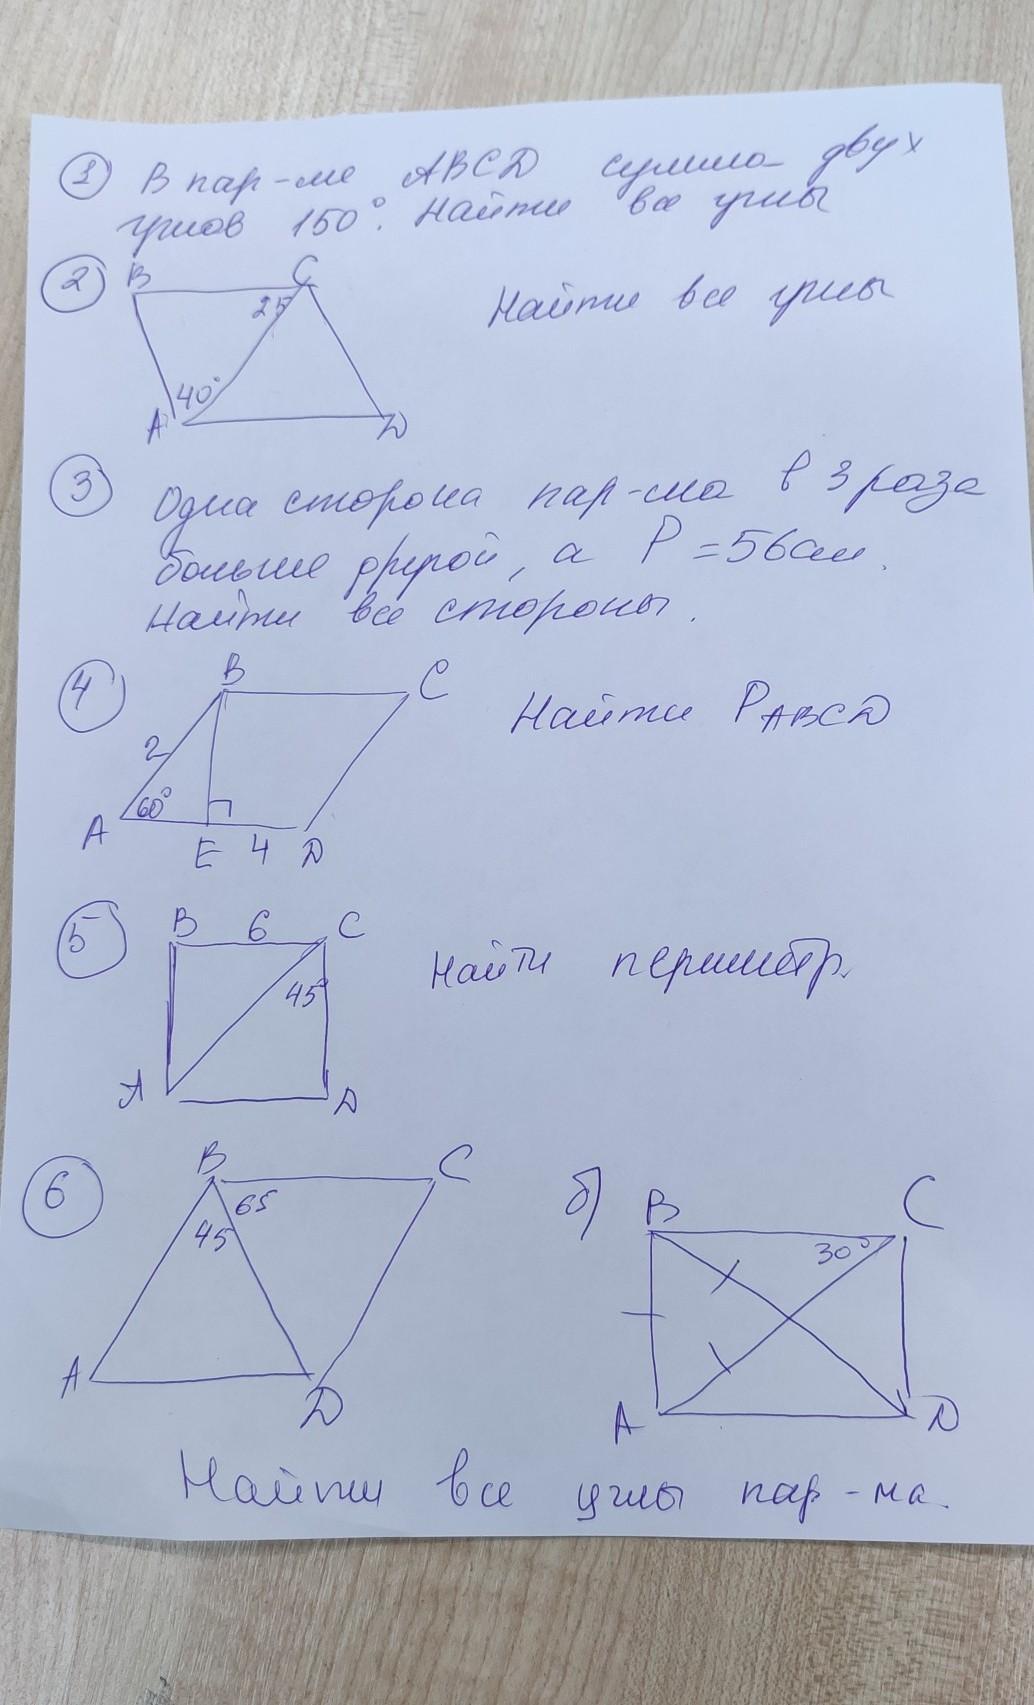 1 В пар-ме ABCD сумма двух
углов 150°. Найти все углы
2 B C Найти все углы
25
40°
A D
3 Одна сторона пар-ма в 3 раза
больше другой, а P = 56 см.
Найти все стороны.
4 B C Найти PABCD
2
60°
A E 4 D
5 B 6 C Найти периметр.
45°
A D
6 B C
65
45
A D
б) B C
30°
A D
Найти все углы пар-ма.